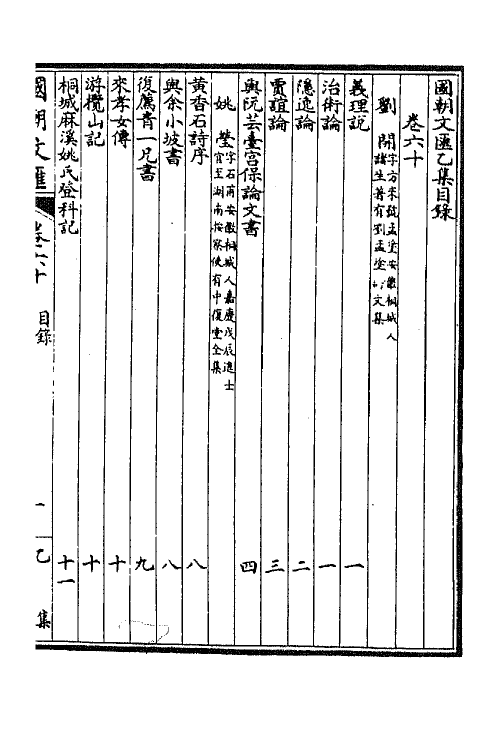 國朝文匯乙集目錄
卷六十
劉開 字方來號孟塗安徽桐城人諸生著有劉孟塗文集
義理說 一
治術論 一
隱逸論 二
賈誼論 三
與阮芸臺宮保論文書 四
姚瑩 字石甫安徽桐城人嘉慶戊辰進士官至湖南按察使有中復堂全集
黃香石詩序 八
與余小坡書 八
復薦青一兄書 九
來孝女傳 十
游欖山記 十
桐城麻溪姚氏登科記 十一
國朝文匯 卷六十 目錄 一 乙集